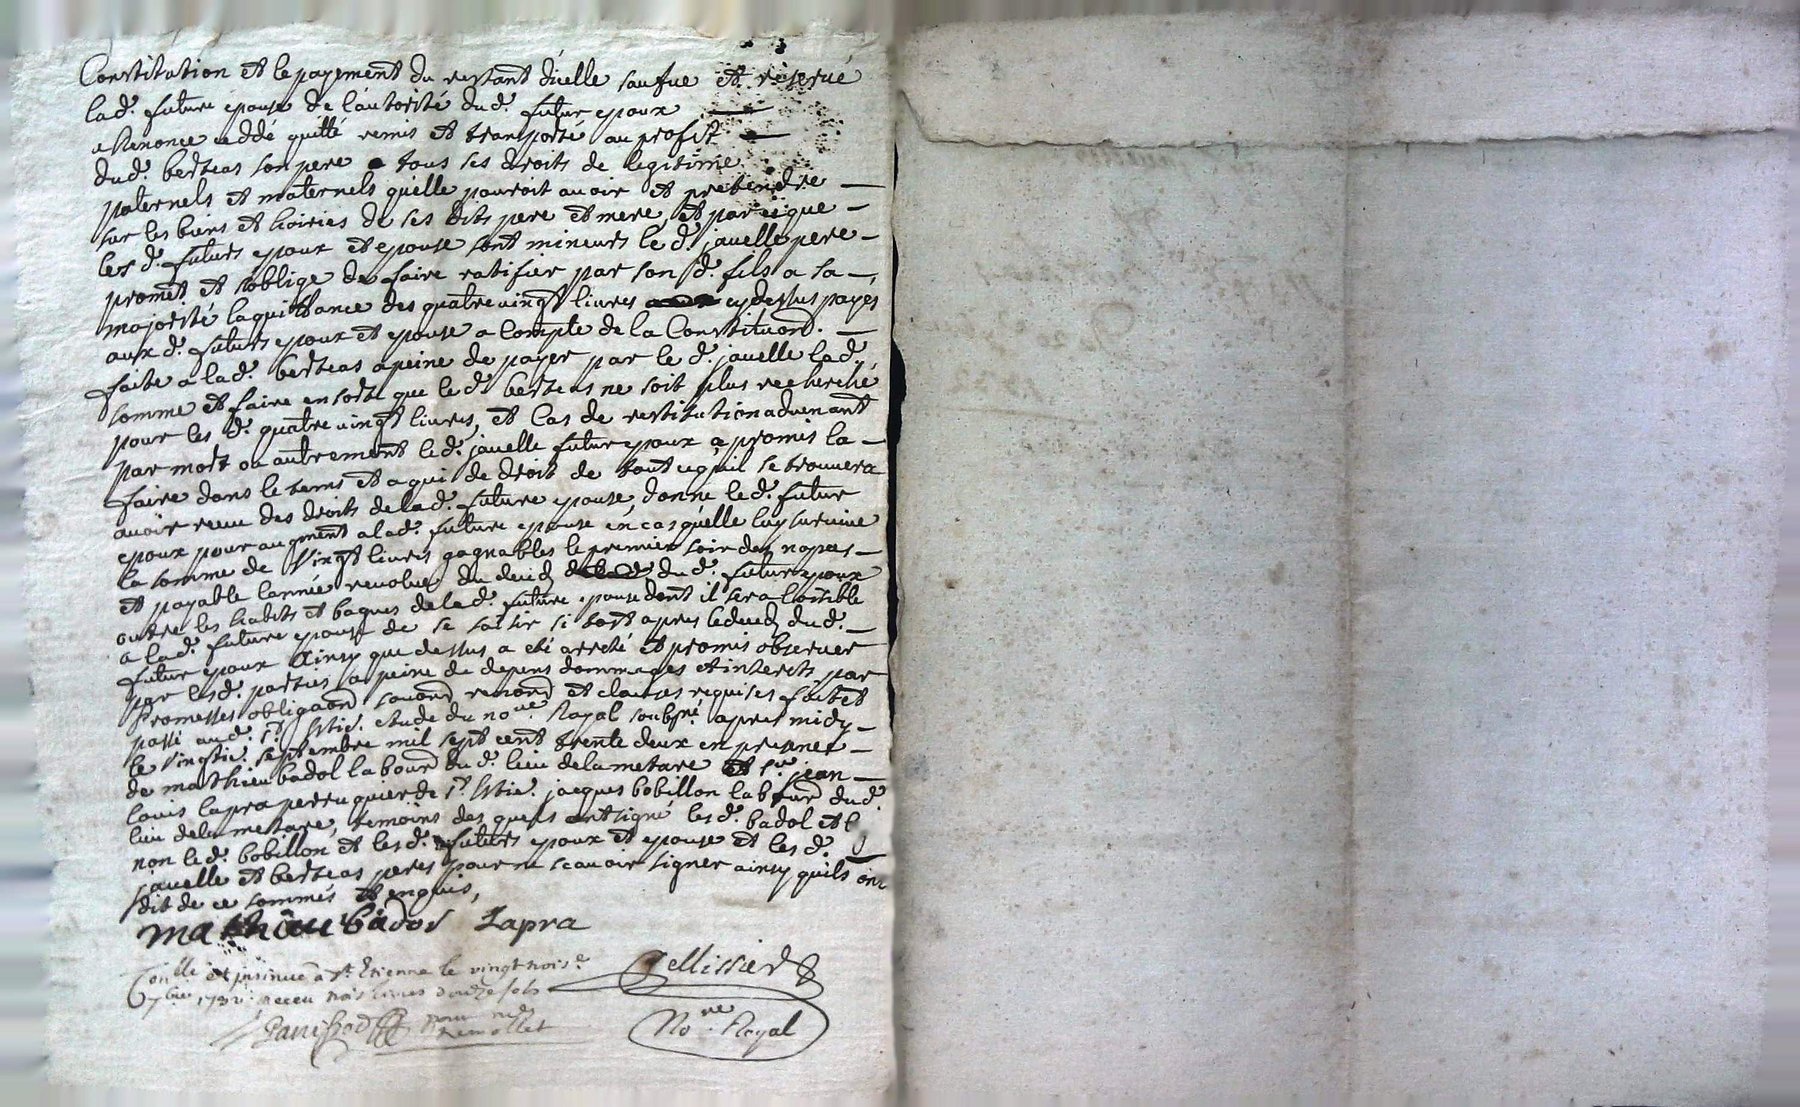 Constitution et le payement du restant d'icelle saufue et reserué
lad. future epouse de l'autorité dud. futur epoux
a Renoncé ceddé quitté remis et transporté au profit
dud. berteas son pere a tous ses droits de legitime
paternels et maternels quelle pouroit auoir et pretendre
sur les biens et hoiries de ses dits pere et mere, et par ce que
lesd. futurs epoux et epouse sont mineurs led. jauelle pere
promet et s'oblige de faire ratifier par son d. fils a sa
majorité la quittance des quatre vingt livres cy dessus payés
aux d. futurs epoux et epouse a Compte de la Constituaon.
faite a lad. berteas a peine de payer par le d. jauelle lad.
somme et faire en sorte que led. berteas ne soit plus recherché
pour les d. quatre vingt livres, et Cas de restitution aduenant
par mort ou autrement led. jauelle futur epoux a promis la
faire dans le tems et a qui de droit de tout ce qu'il se trouuera
auoir receu des droits de lad. future epouse, donne led. futur
epoux pour augment a lad. future epouse en cas qu'elle luy suruiue
la somme de Vingt livres gagnables le premier soir des nopces
et payable l'année revolue du decéd dud. futur epoux
outre les habits et bagues de lad. future epouse dont il sera loisible
a lad. future epouse de se saisir si tost apres le decéd dud.
futur epoux Ainsy que dessus a eté arreté et promis obseruer
par lesd. parties a peine de depens dommages et interets par
Promesses obligaon renond et clauses requises fait et
passé aud. St. Estie. etude du nore Royal soubsné apres midy
le Vingtie. septembre mil sept cent trente deux en presence
de mathieu badol labourr du d. lieu de la metare et sr. jean
Louis lapra perruquier de St. Estie. jacques bobillon labourr dud.
lieu de la metare, temoins des quels ont signé lesd. badol et
non led. bobillon et lesd. futurs epoux et epouse et les d.
jauelle et berteas peres pour ne scauoir signer ainsy quils ont
dit de ce sommés et enquis,
mathieu badol Lapra
Conlle et insinué a St. Etienne le vingt trois e
7bre 1732 receu trois livres douze sols
Pellissier
pour mr
Nore Royal